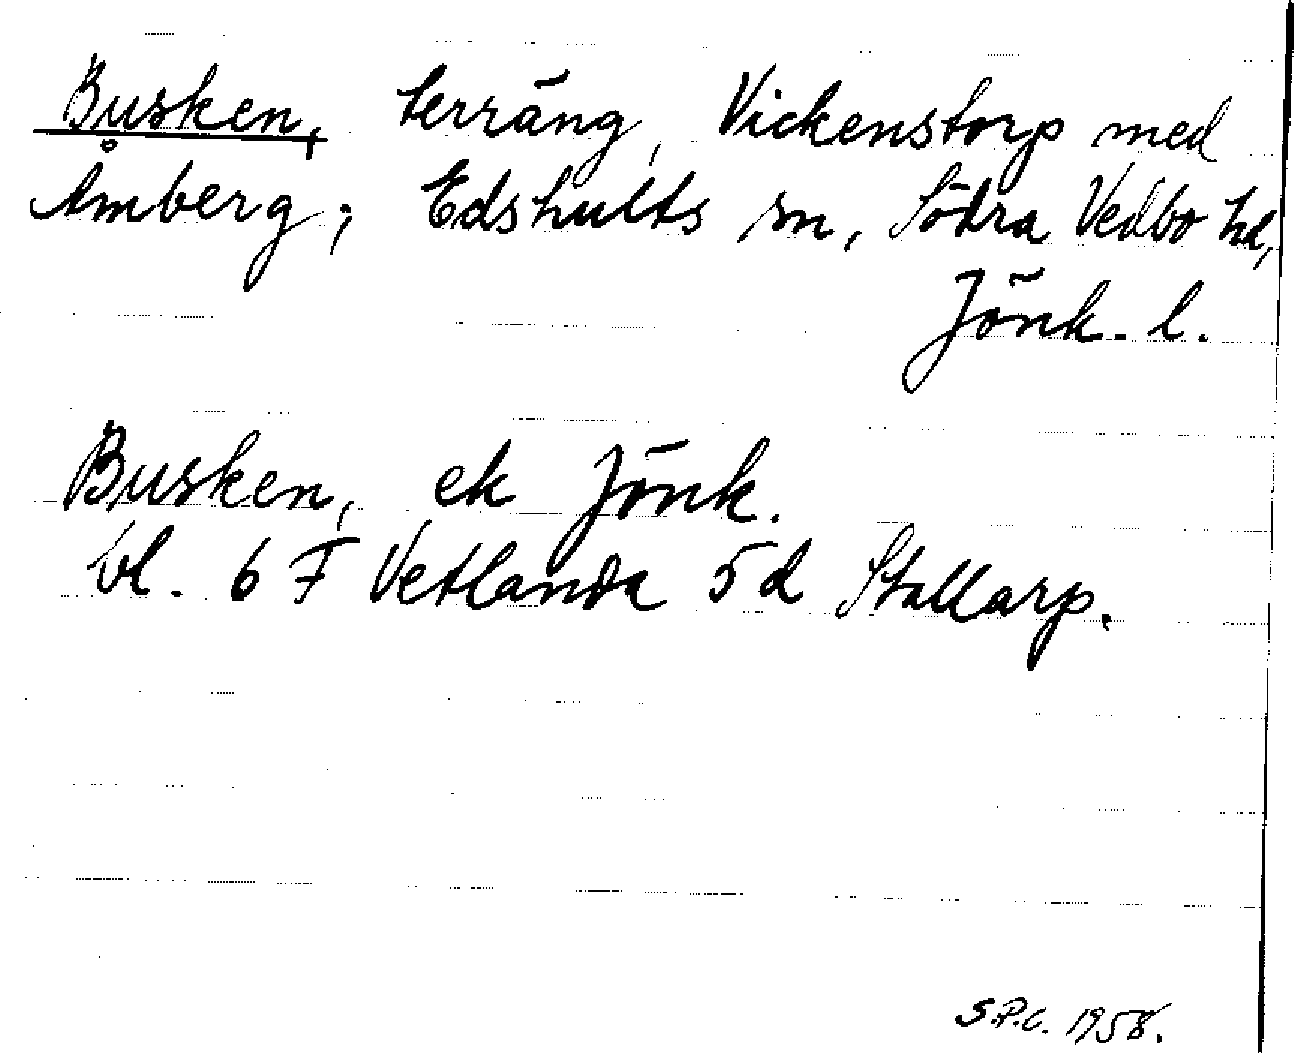 Busken, terräng, Vickenstorp med
Åmberg; Edshults sn, Södra Vedbo hd,
Jönk. l.
Busken, ek Jönk.
bl. 6 F Vetlanda 5d Stallarp.
S.P.C. 1958.